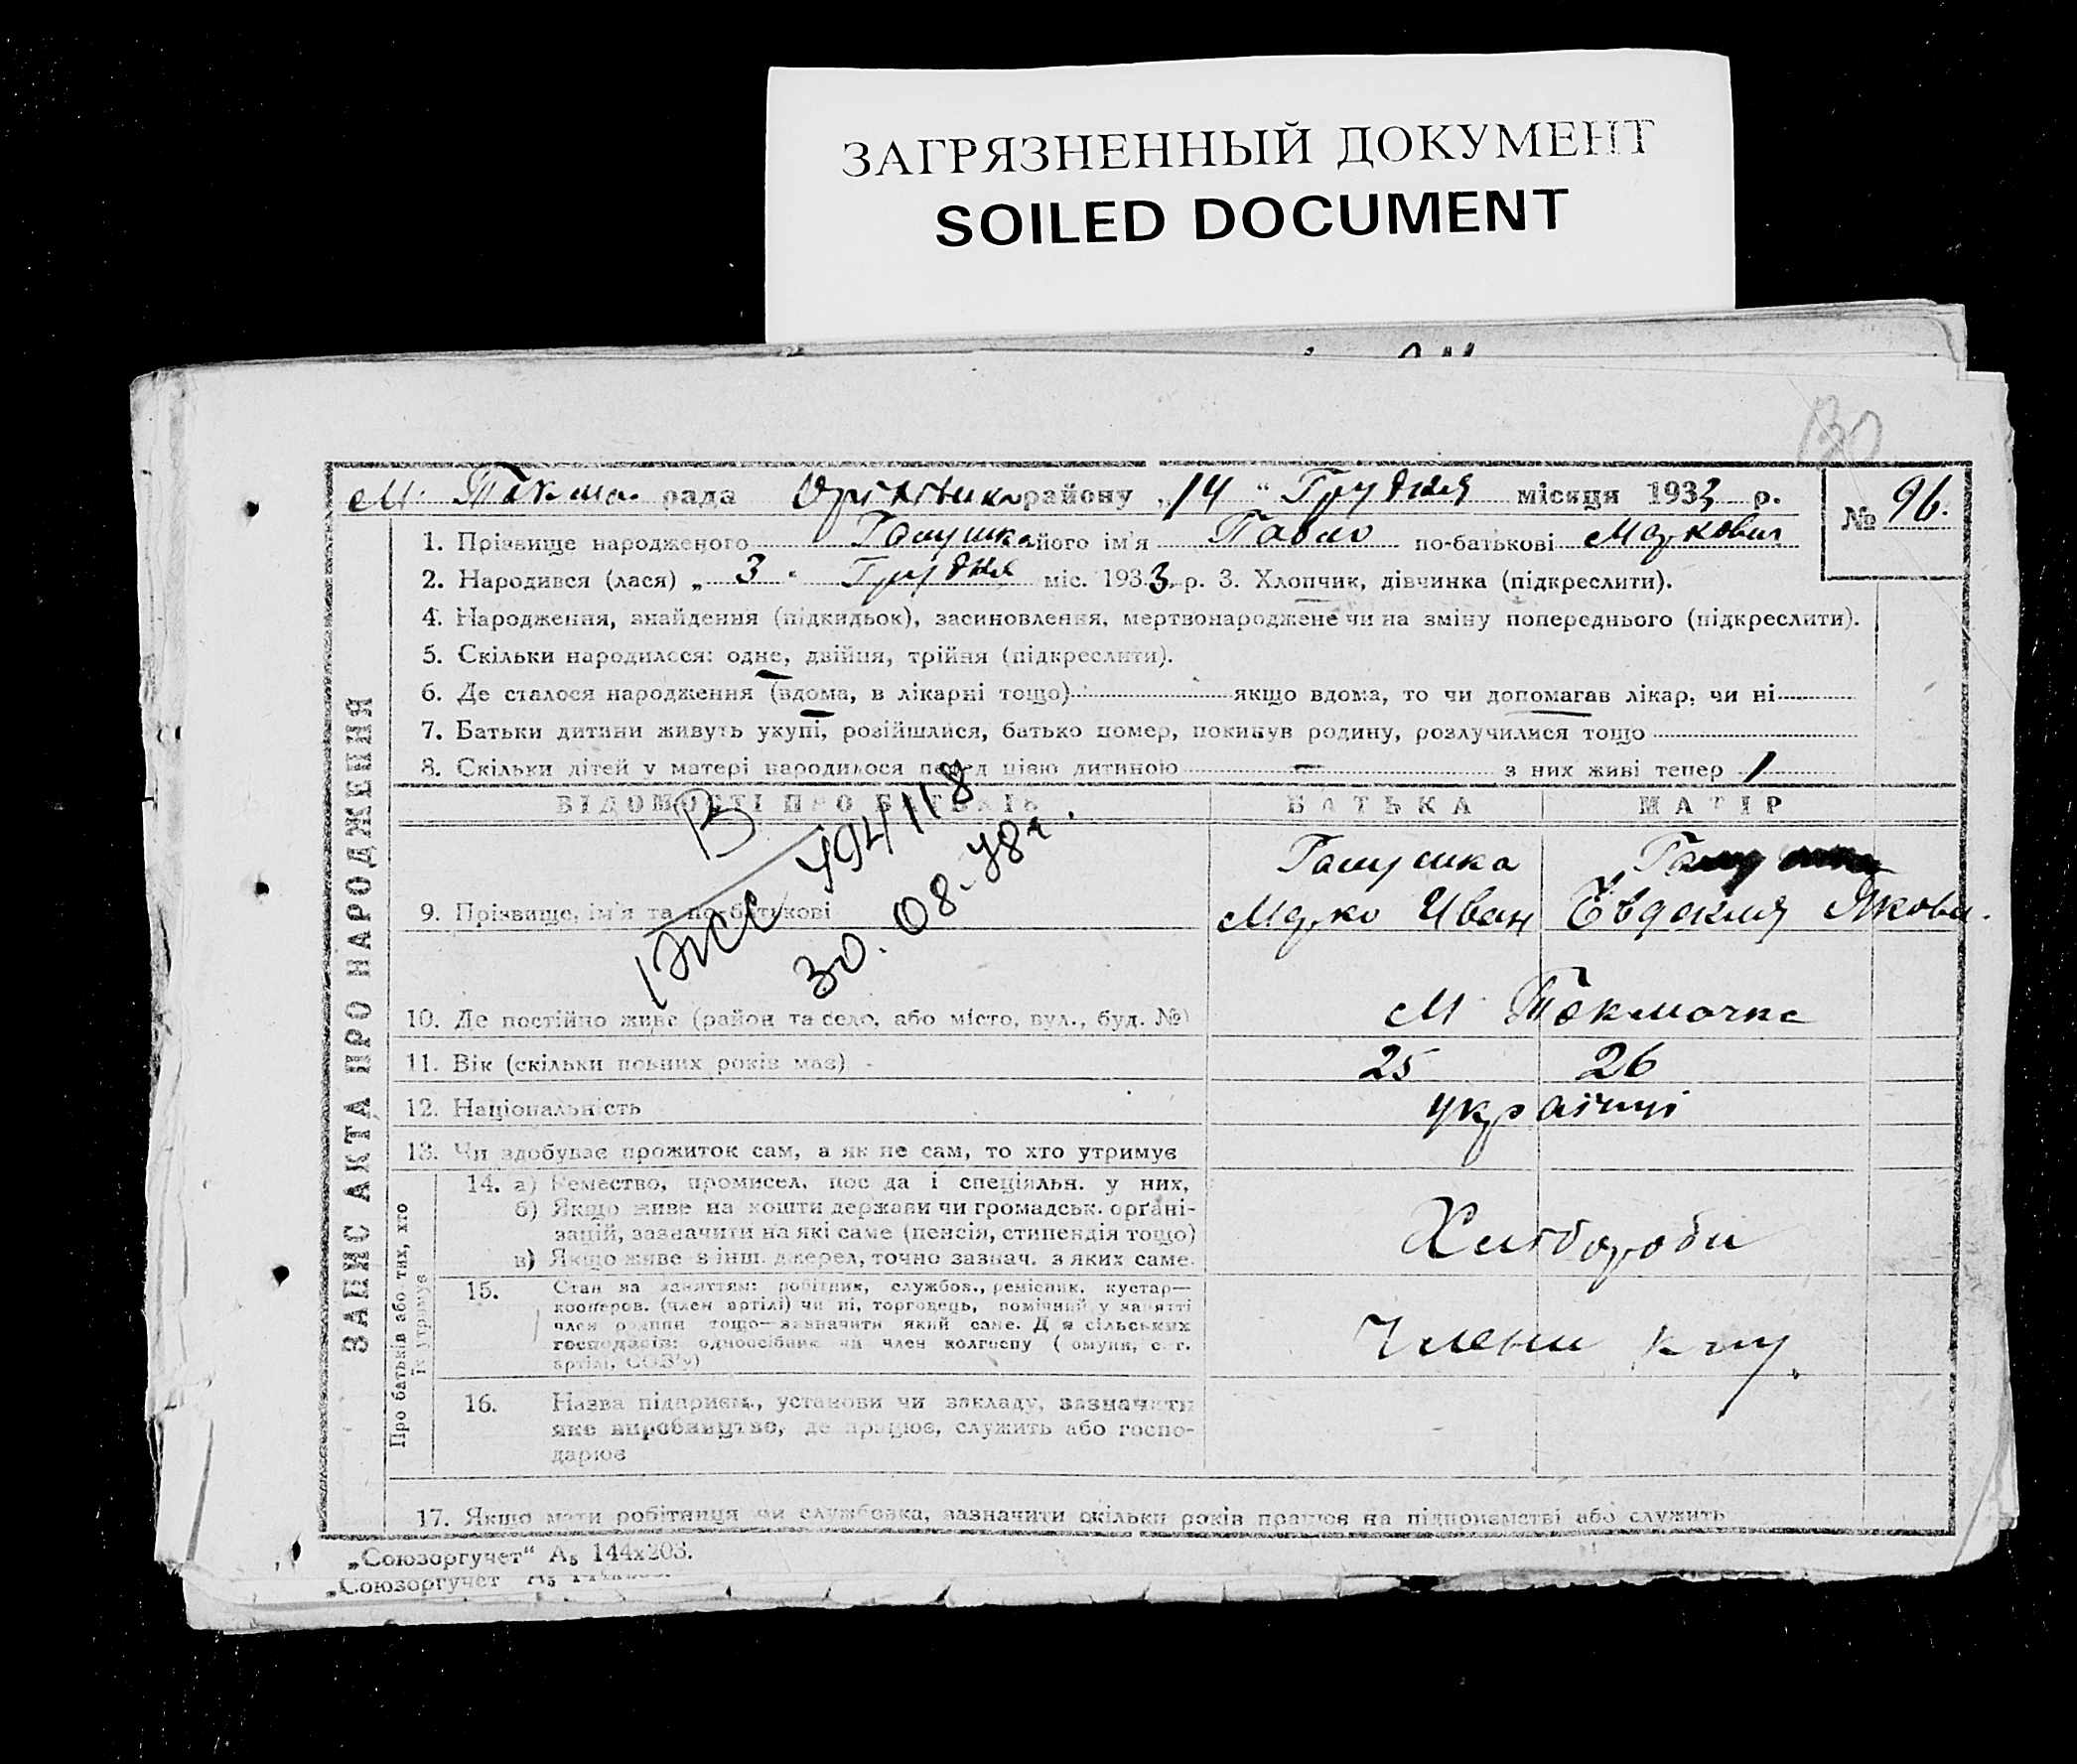 ЗАГРЯЗНЕННЫЙ ДОКУМЕНТ
SOILED DOCUMENT
130
М. Токма. рада районy „14“ Грудня місяця 1933 р.
№ 96.
1. Прізвище народженого Галушка його ім'я Павло по-батькові Маркович
2. Народився (лася) „3“ Грудня міс. 1933 р. 3. Хлопчик, дівчинка (підкреслити).
4. Народження, знайдення (підкидьок), засиновлення, мертвонароджене чи на зміну попереднього (підкреслити).
5. Скільки народилося: одне, двійня, трійня (підкреслити).
6. Де сталося народження (вдома, в лікарні тощо) якщо вдома, то чи допомагав лікар, чи ні
7. Батьки дитини живуть укупі, розійшлися, батько помер, покинув родину, розлучилися тощо
8. Скільки дітей у матері народилося перед цією дитиною — з них живі тепер 1
ЗАПИС АКТА ПРО НАРОДЖЕННЯ
ВІДОМОСТІ ПРО БАТЬКІВ БАТЬКА МАТІР
В
494118
30.08.78г.
Галушка Галушка
9. Прізвище, ім'я та по-батькові Марко Иван Евдокия Якови.
10. Де постійно живе (район та село, або місто, вул., буд. №) М Токмачка
11. Вік (скільки повних років має) 25 26
12. Національність українці
13. Чи здобуває прожиток сам, а як не сам, то хто утримує
Про батьків або тих, хто їх утримує
14. а) Ремество, промисел, посада і спеціяльн. у них,
б) Якщо живе на кошти держави чи громадськ. орґані-
зацій, зазначити на які саме (пенсія, стипендія тощо)
в) Якщо живе з інш. джерел, точно зазнач. з яких саме.
Хлібороби
15. Стан за заняттям: робітник, службов., ремісник, кустар—
кооперов. (член артілі) чи ні, торговець, помічний у занятті
член родини тощо—зазначити який саме. Для сільських
господарів: одноосібник чи член колгоспу (комуни, с.-г.
артілі, СОЗ'у)
Члени
16. Назва підприєм., установи чи закладу, зазначити
яке виробництво, де працює, служить або госпо-
дарює
17. Якщо мати робітниця чи службовка, зазначити скільки років працює на підприємстві або служить
„Союзоргучет“ А₅ 144х203.
„Союзоргучет